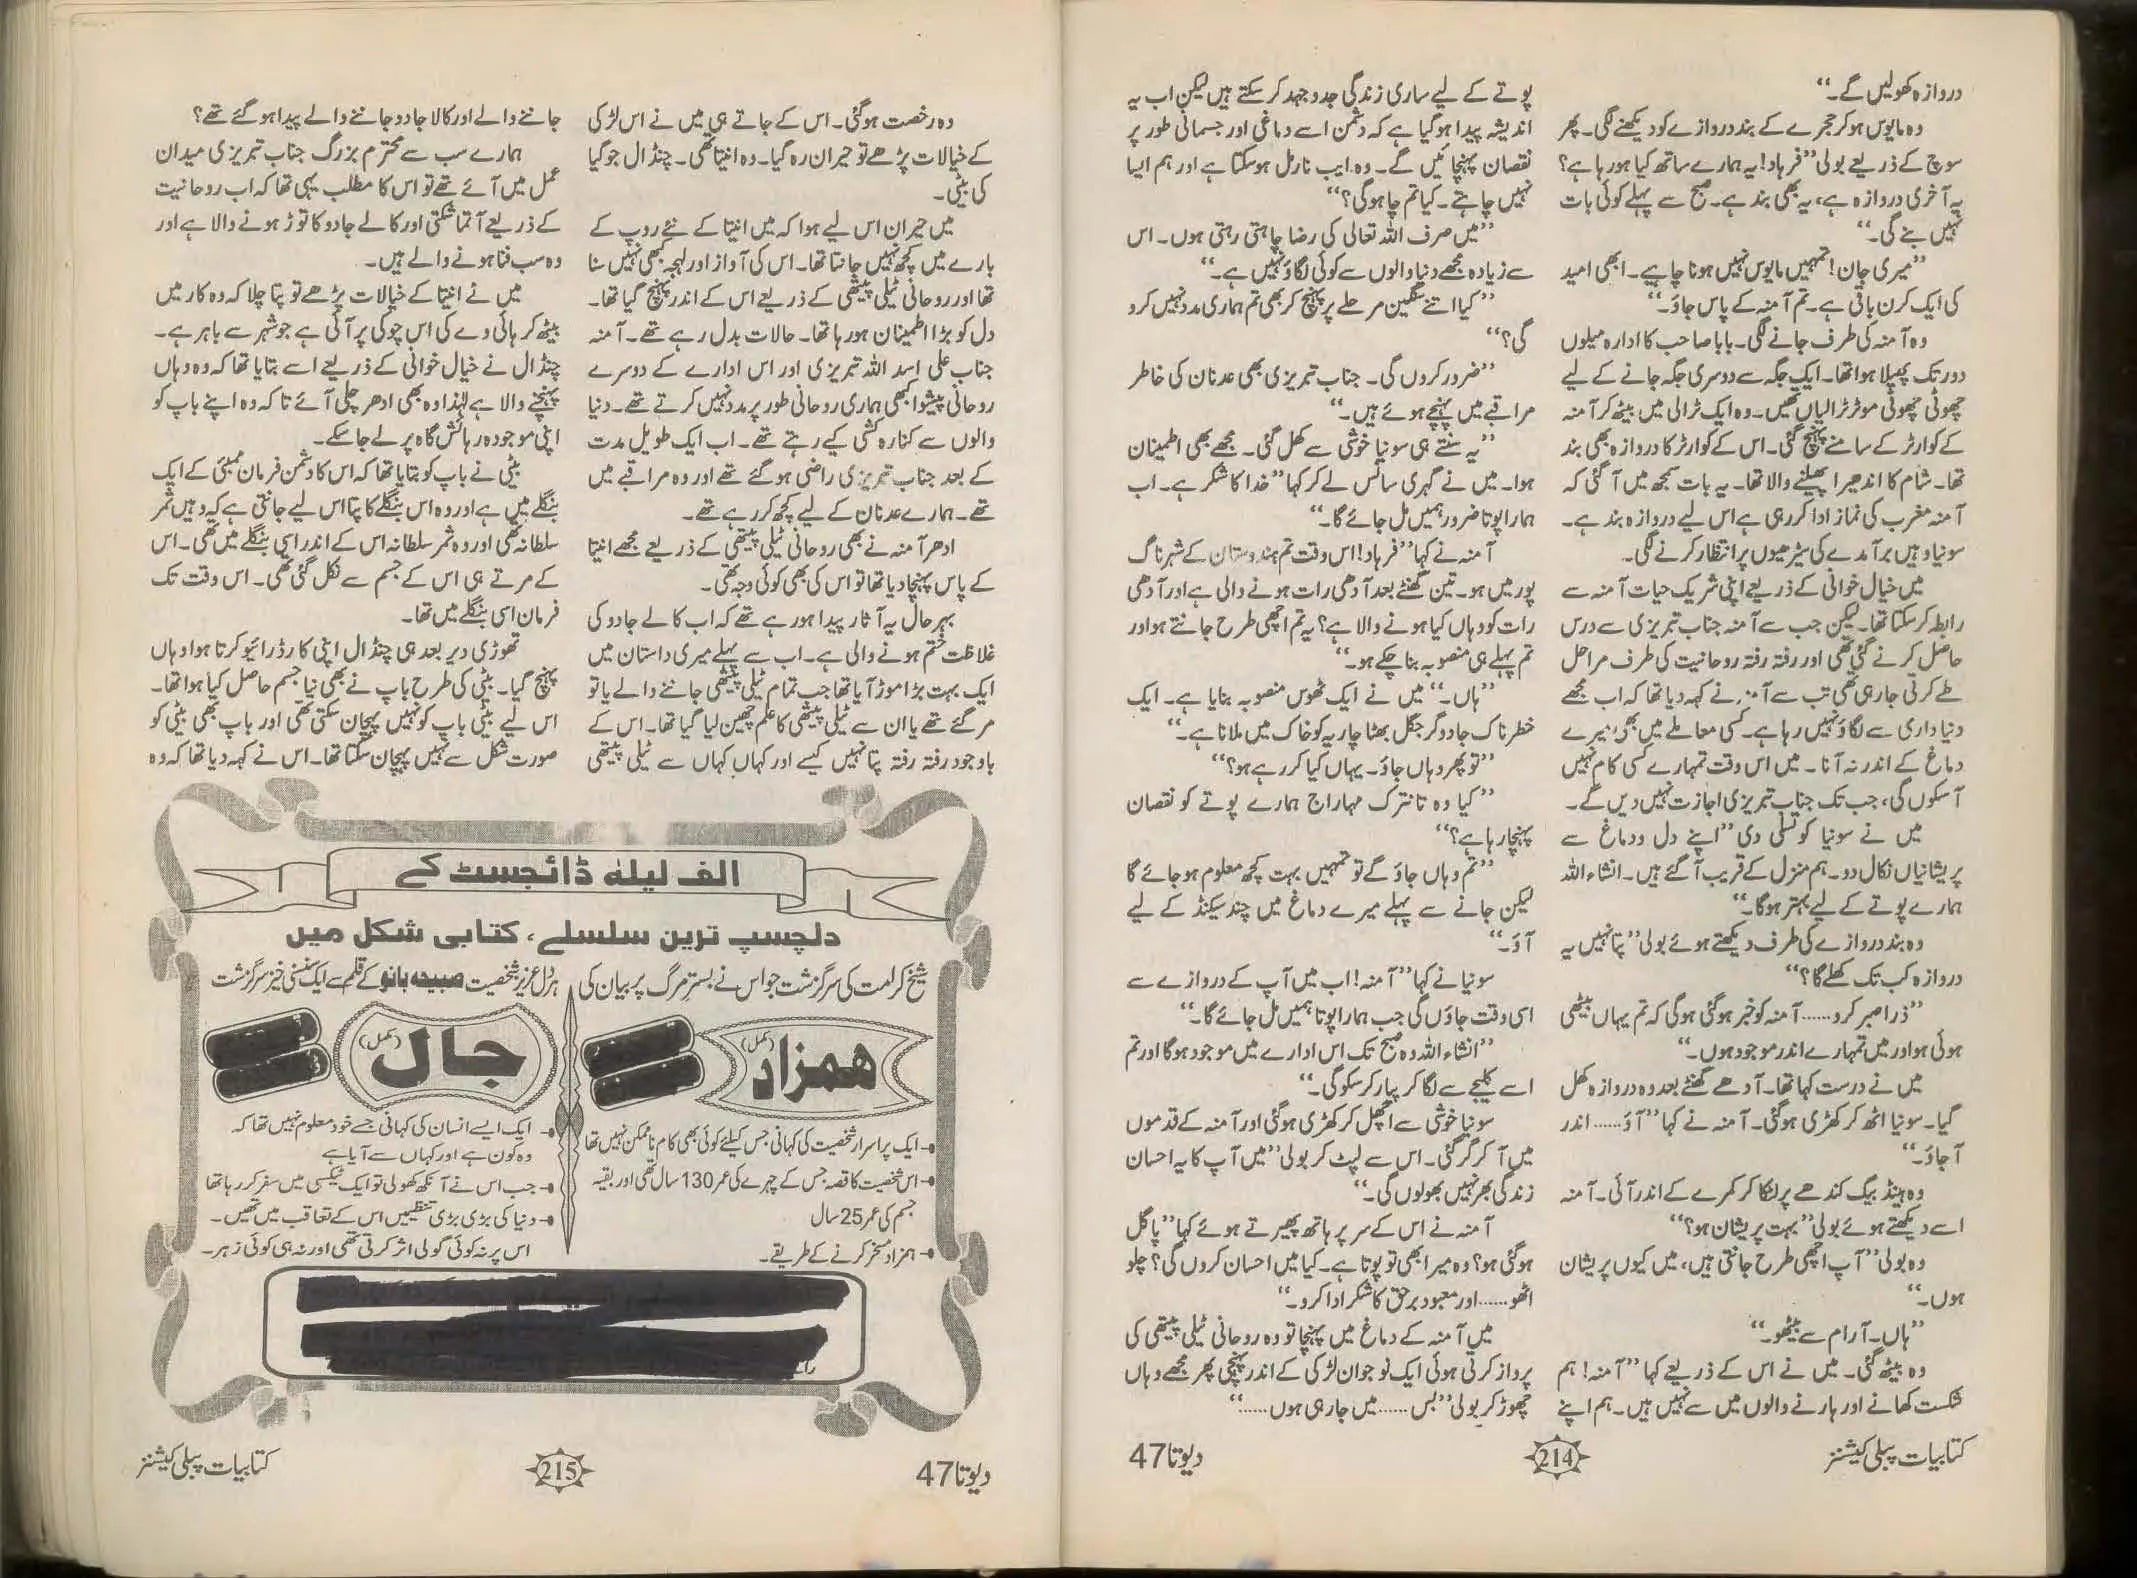 دروازہ کھولیں گے۔‘‘
وہ مایوس ہو کر حجرے کے بند دروازے کو دیکھنے لگی۔ پھر
سوچ کے ذریعے بولی ’’فرہاد! یہ ہمارے ساتھ کیا ہو رہا ہے؟
یہ آخری دروازہ ہے، یہ بھی بند ہے۔ صبح سے پہلے کوئی بات
نہیں بنے گی۔‘‘
’’میری جان! تمہیں مایوس نہیں ہونا چاہیے۔ ابھی امید
کی ایک کرن باقی ہے۔ تم آمنہ کے پاس جاؤ۔‘‘
وہ آمنہ کی طرف جانے لگی۔ بابا صاحب کا ادارہ میلوں
دور تک پھیلا ہوا تھا۔ ایک جگہ سے دوسری جگہ جانے کے لیے
چھوٹی چھوٹی موٹر ٹرالیاں تھیں۔ وہ ایک ٹرالی میں بیٹھ کر آمنہ
کے کوارٹر کے سامنے پہنچ گئی۔ اس کے کوارٹر کا دروازہ بھی بند
تھا۔ شام کا اندھیرا پھیلنے والا تھا۔ یہ بات سمجھ میں آ گئی کہ
آمنہ مغرب کی نماز ادا کر رہی ہے اس لیے دروازہ بند ہے۔
سونیا وہیں برآمدے کی سیڑھیوں پر انتظار کرنے لگی۔
میں خیال خوانی کے ذریعے اپنی شریک حیات آمنہ سے
رابطہ کر سکتا تھا۔ لیکن جب سے آمنہ جناب تبریزی سے درس
حاصل کرنے گئی تھی اور رفتہ رفتہ روحانیت کی طرف مراحل
طے کرتی جا رہی تھی تب سے آمنہ نے کہہ دیا تھا کہ اب مجھے
دنیا داری سے لگاؤ نہیں رہا ہے۔ کسی معاملے میں بھی میرے
دماغ کے اندر نہ آنا۔ میں اس وقت تمہارے کسی کام نہیں
آ سکوں گی، جب تک جناب تبریزی اجازت نہیں دیں گے۔
میں نے سونیا کو تسلی دی ’’اپنے دل و دماغ سے
پریشانیاں نکال دو۔ ہم منزل کے قریب آ گئے ہیں۔ انشاء اللہ
ہمارے پوتے کے لیے بہتر ہوگا۔‘‘
وہ بند دروازے کی طرف دیکھتے ہوئے بولی ’’پتا نہیں یہ
دروازہ کب تک کھلے گا؟‘‘
’’ذرا صبر کرو...... آمنہ کو خبر ہو گئی ہوگی کہ تم یہاں بیٹھی
ہوئی ہو اور میں تمہارے اندر موجود ہوں۔‘‘
میں نے درست کہا تھا۔ آدھے گھنٹے بعد وہ دروازہ کھل
گیا۔ سونیا اٹھ کر کھڑی ہو گئی۔ آمنہ نے کہا ’’آؤ...... اندر
آ جاؤ۔‘‘
وہ ہینڈ بیگ کندھے پر لٹکا کر کمرے کے اندر آئی۔ آمنہ
اسے دیکھتے ہوئے بولی ’’بہت پریشان ہو؟‘‘
وہ بولی ’’آپ اچھی طرح جانتی ہیں، میں کیوں پریشان
ہوں۔‘‘
’’ہاں۔ آرام سے بیٹھو۔‘‘
وہ بیٹھ گئی۔ میں نے اس کے ذریعے کہا ’’آمنہ! ہم
شکست کھانے اور ہارنے والوں میں سے نہیں ہیں۔ ہم اپنے
پوتے کے لیے ساری زندگی جدوجہد کر سکتے ہیں لیکن اب یہ
اندیشہ پیدا ہو گیا ہے کہ دشمن اسے دماغی اور جسمانی طور پر
نقصان پہنچائیں گے۔ وہ ایب نارمل ہو سکتا ہے اور ہم ایسا
نہیں چاہتے۔ کیا تم چاہو گی؟‘‘
’’میں صرف اللہ تعالیٰ کی رضا چاہتی رہتی ہوں۔ اس
سے زیادہ مجھے دنیا والوں سے کوئی لگاؤ نہیں ہے۔‘‘
’’کیا اتنے سنگین مرحلے پر پہنچ کر بھی تم ہماری مدد نہیں کرو
گی؟‘‘
’’ضرور کروں گی۔ جناب تبریزی بھی عدنان کی خاطر
مراقبے میں پہنچے ہوئے ہیں۔‘‘
’’یہ سنتے ہی سونیا خوشی سے کھل گئی۔ مجھے بھی اطمینان
ہوا۔ میں نے گہری سانس لے کر کہا ’’خدا کا شکر ہے۔ اب
ہمارا پوتا ضرور ہمیں مل جائے گا۔‘‘
آمنہ نے کہا ’’فرہاد! اس وقت تم ہندوستان کے شہر ناگ
پور میں ہو۔ تین گھنٹے بعد آدھی رات ہونے والی ہے اور آدھی
رات کو وہاں کیا ہونے والا ہے؟ یہ تم اچھی طرح جانتے ہو اور
تم پہلے ہی منصوبہ بنا چکے ہو۔‘‘
’’ہاں۔‘‘ میں نے ایک ٹھوس منصوبہ بنایا ہے۔ ایک
خطرناک جادوگر جگل بھٹا چاریہ کو خاک میں ملانا ہے۔‘‘
’’تو پھر وہاں جاؤ۔ یہاں کیا کر رہے ہو؟‘‘
’’کیا وہ تانترک مہاراج ہمارے پوتے کو نقصان
پہنچا رہا ہے؟‘‘
’’تم وہاں جاؤ گے تو تمہیں بہت کچھ معلوم ہو جائے گا
لیکن جانے سے پہلے میرے دماغ میں چند سیکنڈ کے لیے
آؤ۔‘‘
سونیا نے کہا ’’آمنہ! اب میں آپ کے دروازے سے
اسی وقت جاؤں گی جب ہمارا پوتا ہمیں مل جائے گا۔‘‘
’’انشاء اللہ وہ صبح تک اس ادارے میں موجود ہوگا اور تم
اسے کلیجے سے لگا کر پیار کر سکو گی۔‘‘
سونیا خوشی سے اچھل کر کھڑی ہو گئی اور آمنہ کے قدموں
میں آ کر گر گئی۔ اس سے لپٹ کر بولی ’’میں آپ کا یہ احسان
زندگی بھر نہیں بھولوں گی۔‘‘
آمنہ نے اس کے سر پر ہاتھ پھیرتے ہوئے کہا ’’پاگل
ہو گئی ہو؟ وہ میرا بھی تو پوتا ہے۔ کیا میں احسان کروں گی؟ چلو
اٹھو...... اور معبود برحق کا شکر ادا کرو۔‘‘
میں آمنہ کے دماغ میں پہنچا تو وہ روحانی ٹیلی پیتھی کی
پرواز کرتی ہوئی ایک نوجوان لڑکی کے اندر پہنچی پھر مجھے وہاں
چھوڑ کر بولی ’’بس...... میں جا رہی ہوں......‘‘
کتابیات پبلی کیشنز
214
دیوتا 47
وہ رخصت ہو گئی۔ اس کے جاتے ہی میں نے اس لڑکی
کے خیالات پڑھے تو حیران رہ گیا۔ وہ انیتا تھی۔ چنڈال جوگیا
کی بیٹی۔
میں حیران اس لیے ہوا کہ میں انیتا کے نئے روپ کے
بارے میں کچھ نہیں جانتا تھا۔ اس کی آواز اور لہجہ بھی نہیں سنا
تھا اور روحانی ٹیلی پیتھی کے ذریعے اس کے اندر پہنچ گیا تھا۔
دل کو بڑا اطمینان ہو رہا تھا۔ حالات بدل رہے تھے۔ آمنہ
جناب علی اسد اللہ تبریزی اور اس ادارے کے دوسرے
روحانی پیشوا کبھی ہماری روحانی طور پر مدد نہیں کرتے تھے۔ دنیا
والوں سے کنارہ کشی کیے رہتے تھے۔ اب ایک طویل مدت
کے بعد جناب تبریزی راضی ہو گئے تھے اور وہ مراقبے میں
تھے۔ ہمارے عدنان کے لیے کچھ کر رہے تھے۔
ادھر آمنہ نے بھی روحانی ٹیلی پیتھی کے ذریعے مجھے انیتا
کے پاس پہنچا دیا تھا تو اس کی بھی کوئی وجہ تھی۔
بہرحال یہ آثار پیدا ہو رہے تھے کہ اب کالے جادو کی
غلاظت ختم ہونے والی ہے۔ اب سے پہلے میری داستان میں
ایک بہت بڑا موڑ آیا تھا جب تمام ٹیلی پیتھی جاننے والے یا تو
مر گئے تھے یا ان سے ٹیلی پیتھی کا علم چھین لیا گیا تھا۔ اس کے
باوجود رفتہ رفتہ پتا نہیں کیسے اور کہاں کہاں سے ٹیلی پیتھی
جاننے والے اور کالا جادو جاننے والے پیدا ہو گئے تھے؟
ہمارے سب سے محترم بزرگ جناب تبریزی میدان
عمل میں آئے تھے تو اس کا مطلب یہی تھا کہ اب روحانیت
کے ذریعے آتما شکتی اور کالے جادو کا توڑ ہونے والا ہے اور
وہ سب فنا ہونے والے ہیں۔
میں نے انیتا کے خیالات پڑھے تو پتا چلا کہ وہ کار میں
بیٹھ کر ہائی وے کی اس چوکی پر آئی ہے جو شہر سے باہر ہے۔
چنڈال نے خیال خوانی کے ذریعے اسے بتایا تھا کہ وہ وہاں
پہنچنے والا ہے لہٰذا وہ بھی ادھر چلی آئے تاکہ وہ اپنے باپ کو
اپنی موجودہ رہائش گاہ پر لے جا سکے۔
بیٹی نے باپ کو بتایا تھا کہ اس کا دشمن فرمان ممبئی کے ایک
بنگلے میں ہے اور وہ اس بنگلے کا پتا اس لیے جانتی ہے کہ وہیں ثمر
سلطانہ تھی اور وہ ثمر سلطانہ اس کے اندر اسی بنگلے میں تھی۔ اس
کے مرتے ہی اس کے جسم سے نکل گئی تھی۔ اس وقت تک
فرمان اسی بنگلے میں تھا۔
تھوڑی دیر بعد ہی چنڈال اپنی کار ڈرائیو کرتا ہوا وہاں
پہنچ گیا۔ بیٹی کی طرح باپ نے بھی نیا جسم حاصل کیا ہوا تھا۔
اس لیے بیٹی باپ کو نہیں پہچان سکتی تھی اور باپ بھی بیٹی کو
صورت شکل سے نہیں پہچان سکتا تھا۔ اس نے کہہ دیا تھا کہ وہ
الف لیلہ ڈائجسٹ کے
دلچسپ ترین سلسلے، کتابی شکل میں
شیخ کرامت کی سرگزشت جو اس نے بستر مرگ پر بیان کی
ہمزاد (مکمل)
ایک پراسرار شخصیت کی کہانی جس کیلئے کوئی بھی کام ناممکن نہیں تھا
اس شخصیت کا قصہ جس کے چہرے کی عمر 130 سال تھی اور بقیہ
جسم کی عمر 25 سال
ہمزاد مسخر کرنے کے طریقے۔
ہر دل عزیز شخصیت صبیحہ بانو کے قلم سے ایک سنسنی خیز سرگزشت
جال (مکمل)
ایک ایسے انسان کی کہانی جسے خود معلوم نہیں تھا کہ
وہ کون ہے اور کہاں سے آیا ہے
جب اس نے آنکھ کھولی تو ایک ٹیکسی میں سفر کر رہا تھا
دنیا کی بڑی بڑی تنظیمیں اس کے تعاقب میں تھیں۔
اس پر نہ کوئی گولی اثر کرتی تھی اور نہ ہی کوئی زہر۔
دیوتا 47
215
کتابیات پبلی کیشنز